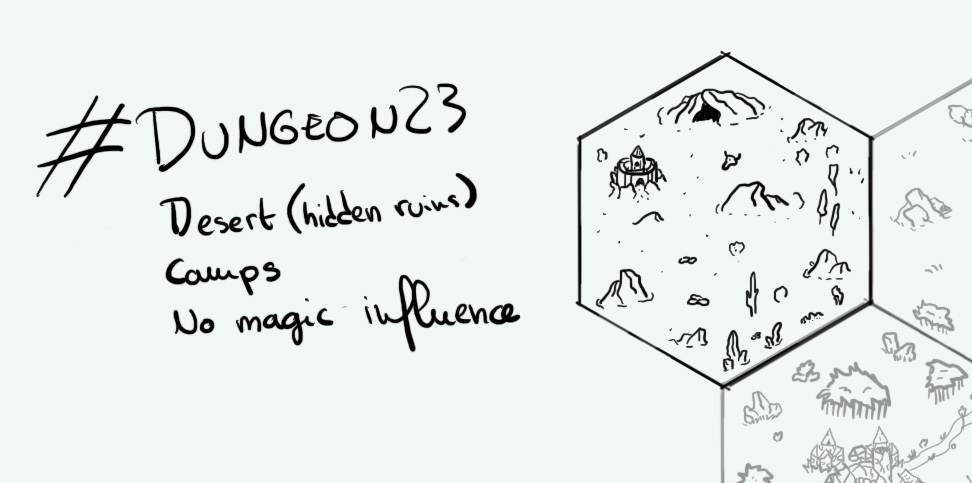 #DUNGEON23
Desert (hidden ruins)
Camps
No magic influence